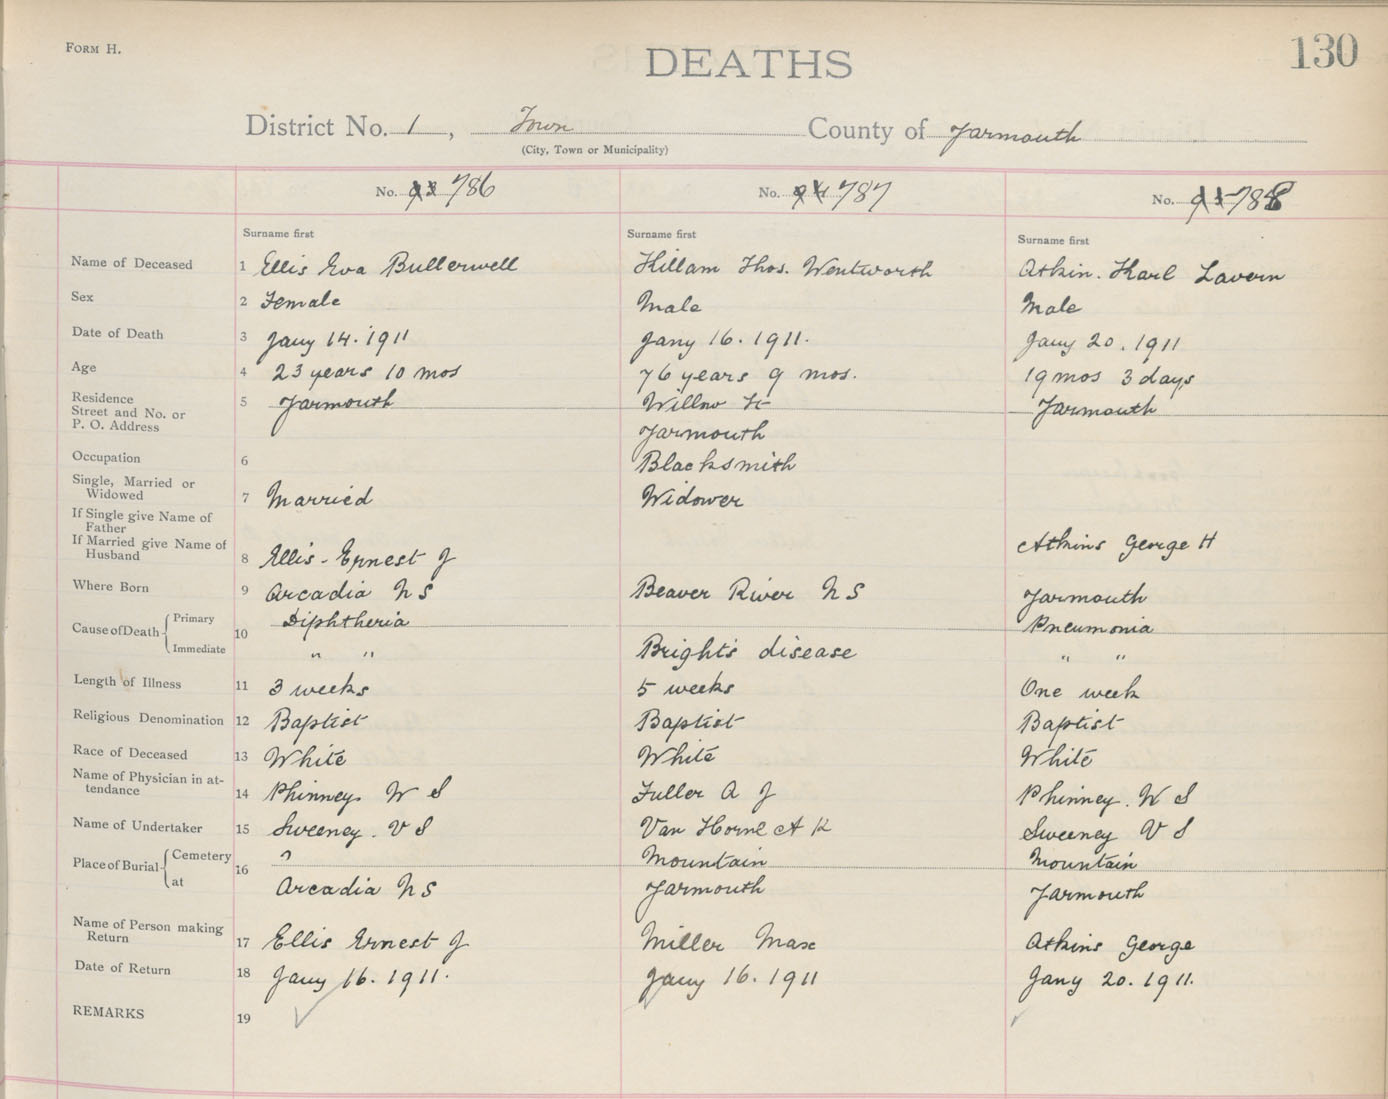 FORM H.
DEATHS
130
District No. 1, Town County of Yarmouth
(City, Town or Municipality)
No. 93 786 No. 94 787 No. 95 788
Surname first Surname first Surname first
Name of Deceased 1 Ellis Eva Bullerwell Killam Thos. Wentworth Atkin. Karl Lavern
Sex 2 Female Male Male
Date of Death 3 Jany 14. 1911 Jany 16. 1911. Jany 20. 1911
Age 4 23 years 10 mos 76 years 9 mos. 19 mos 3 days
Residence
Street and No. or
P. O. Address 5 Yarmouth Willow St Yarmouth
Yarmouth
Occupation 6 Blacksmith
Single, Married or
Widowed 7 Married Widower
If Single give Name of
Father
If Married give Name of
Husband 8 Ellis - Ernest J Atkins George H
Where Born 9 Arcadia N S Beaver River N S Yarmouth
Cause of Death 10 Primary Diphtheria Pneumonia
Immediate " " Bright's disease " "
Length of Illness 11 3 weeks 5 weeks One week
Religious Denomination 12 Baptist Baptist Baptist
Race of Deceased 13 White White White
Name of Physician in at-
tendance 14 Phinney W S Fuller A J Phinney. W S
Name of Undertaker 15 Sweeney. V S Van Horne A K Sweeney V S
Place of Burial 16 Cemetery ? Mountain Mountain
at Arcadia N S Yarmouth Yarmouth
Name of Person making
Return 17 Ellis Ernest J Miller Max Atkins George
Date of Return 18 Jany 16. 1911. Jany 16. 1911 Jany 20. 1911.
REMARKS 19